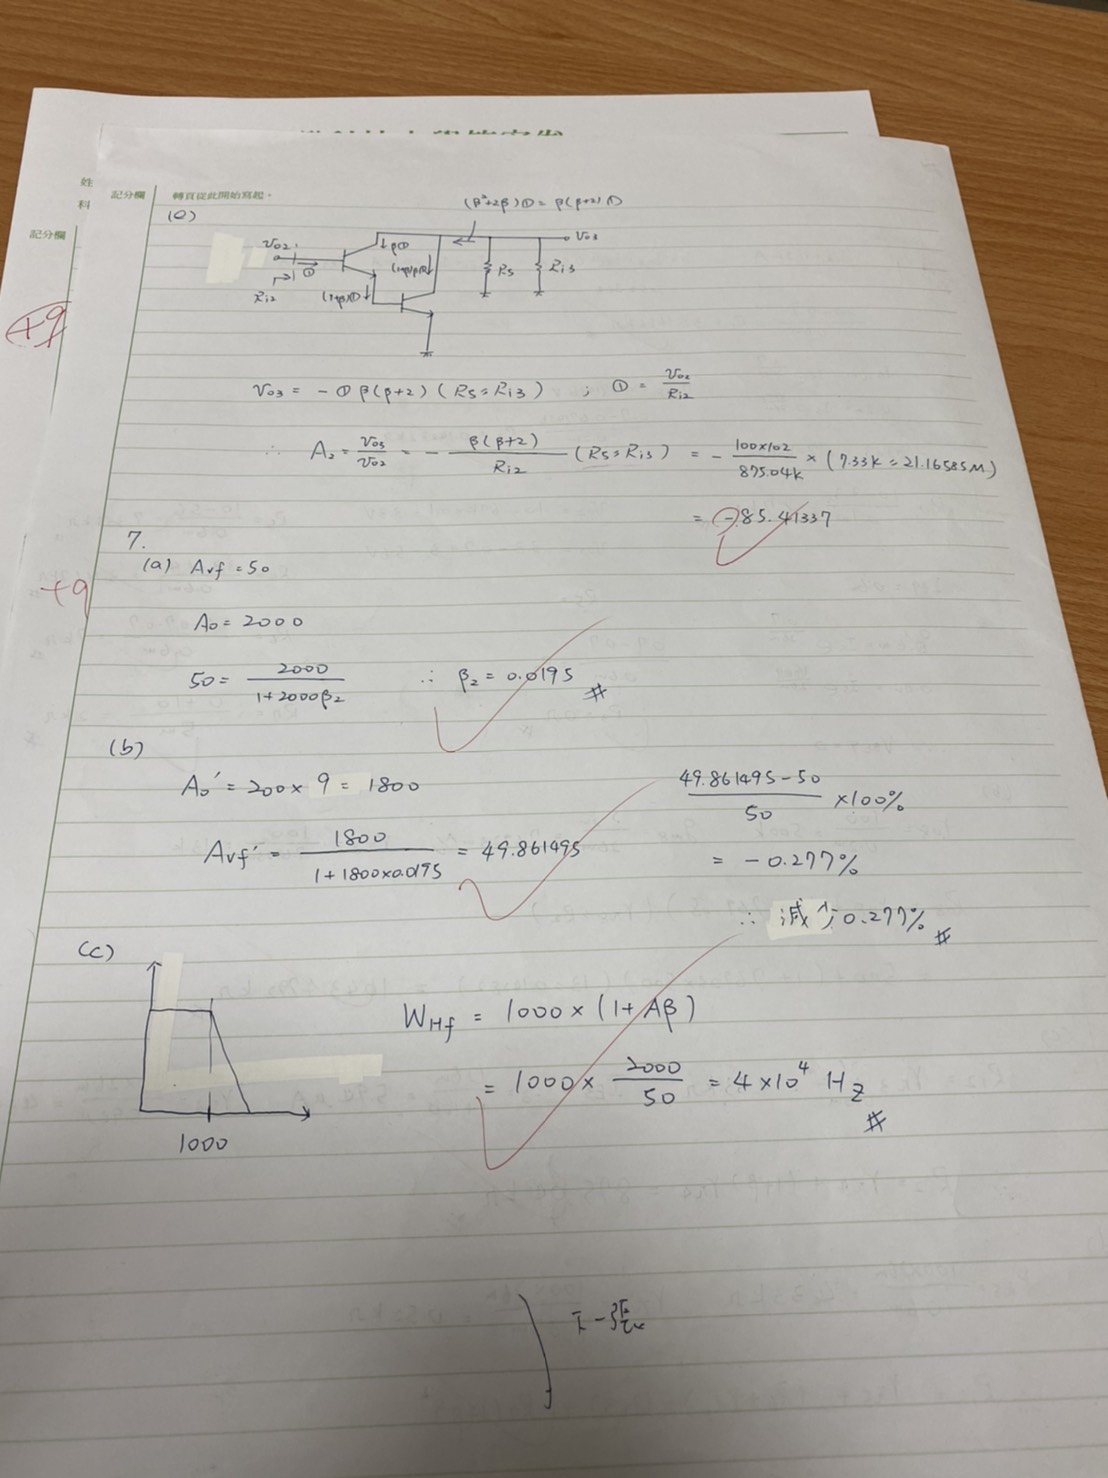 姓
科
記分欄
記分欄 轉頁從此開始寫起。
(e)
(β²+2β)① = β(β+2)①
Vo2
①
Ri2
β①
(1+β)①
(1+β)β①
R5
Ri3
Vo3
+9
Vo3 = - ① β(β+2) (R5 // Ri3) ; ① = Vo2 / Ri2
∴ A2 = Vo3 / Vo2 = - β(β+2) / Ri2 (R5 // Ri3) = - 100×102 / 875.04K × (7.33K // 21.16585M)
= -85.41337
7.
(a) Avf = 50
+9
A0 = 2000
50 = 2000 / 1+2000β2 ∴ β2 = 0.0195 #
(b)
A0' = 200 × 9 = 1800
49.861495-50 / 50 ×100%
Avf' = 1800 / 1+1800×0.0195 = 49.861495
= -0.277%
∴ 減少 0.277% #
(c)
1000
WHf = 1000 × (1+Aβ)
= 1000 × 2000 / 50 = 4×10⁴ Hz #
下一張